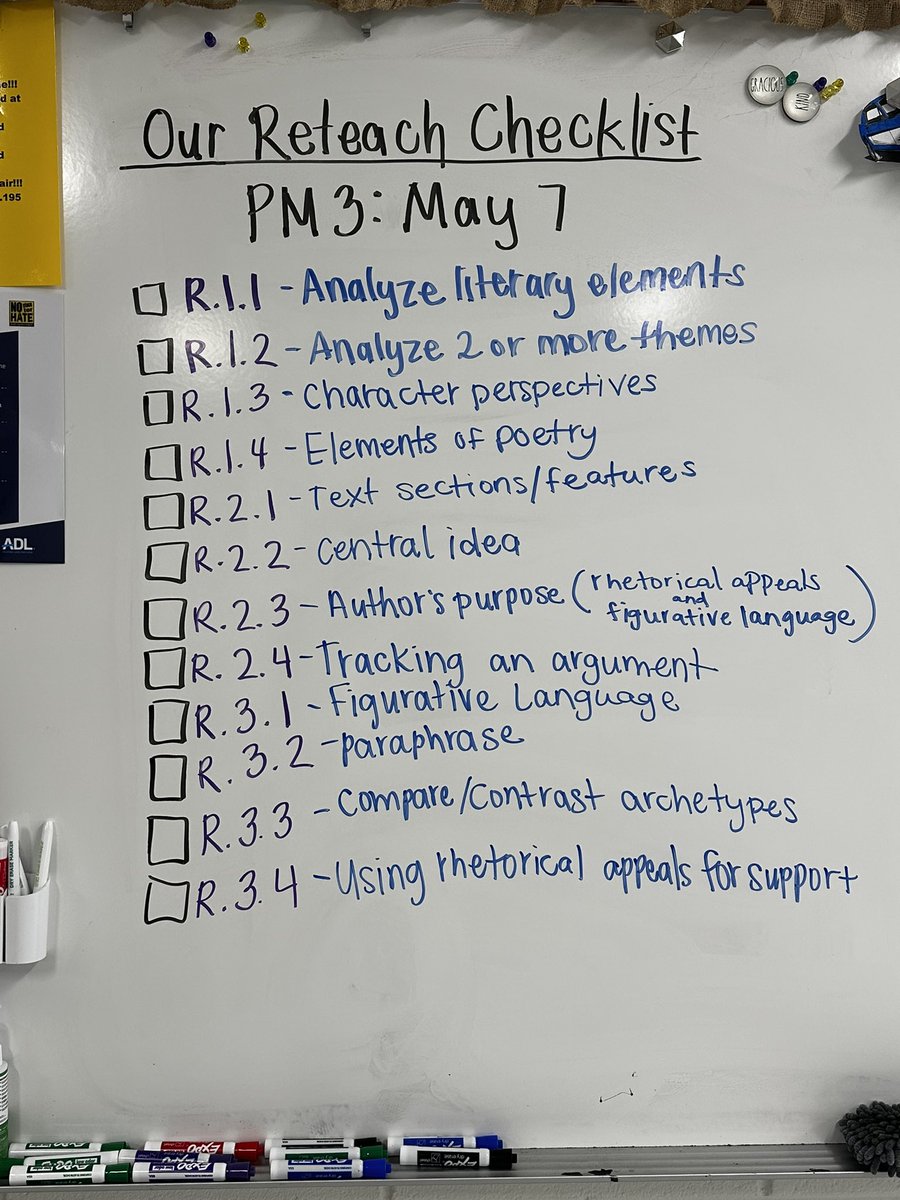 e!!!
d at
d
d
air!!!
.195
GRACIOUS
KIND
Our Reteach Checklist
PM3: May 7
R.1.1 - Analyze literary elements
R.1.2 - Analyze 2 or more themes
R.1.3 - Character perspectives
R.1.4 - Elements of poetry
R.2.1 - Text sections/features
R.2.2 - Central idea
R.2.3 - Author's purpose (rhetorical appeals
and
figurative language)
R.2.4 - Tracking an argument
R.3.1 - Figurative Language
R.3.2 - paraphrase
R.3.3 - Compare/Contrast archetypes
R.3.4 - Using rhetorical appeals for support
NO
HATE
ADL
EXPO
EXPO
EXPO
EXPO